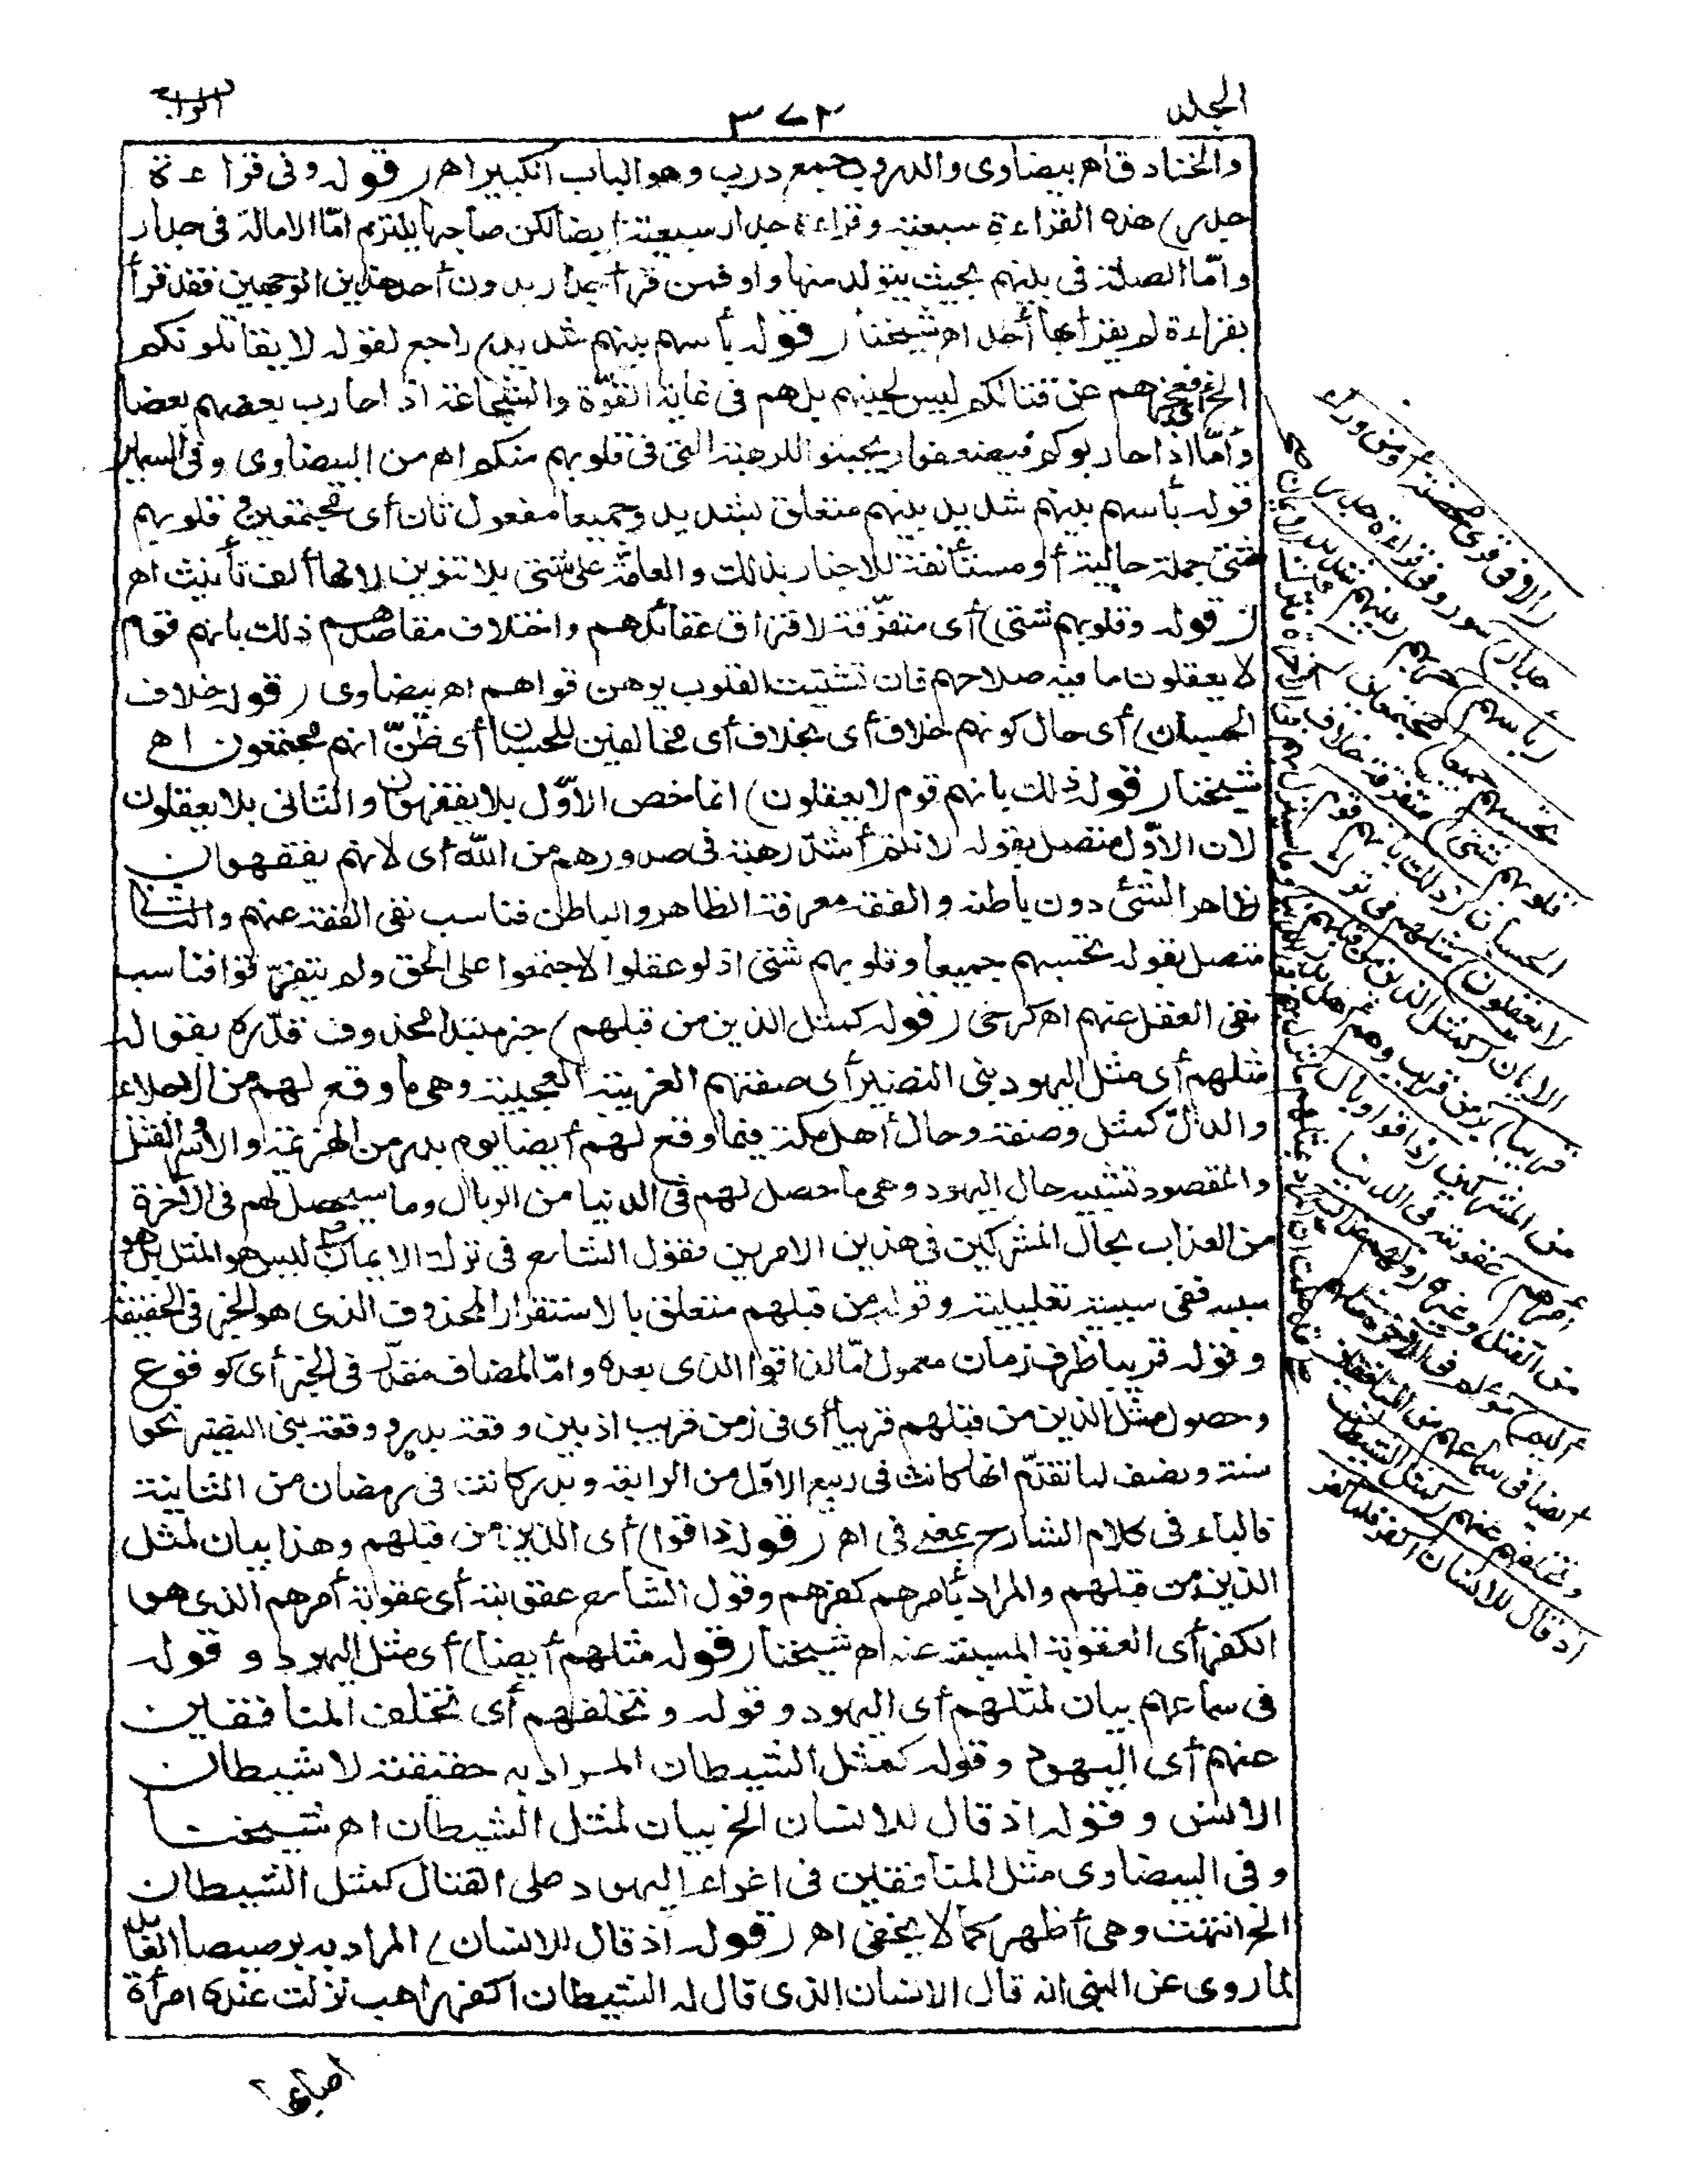 الجلد
٣٧٢
الرابع
والخنادق اهر بيضاوى والدروب جمع درب وهو الباب الكبير اهر (قوله وفى قراءة
جدر) هذه القراءة سبعية وقراءة جدار سبعية أيضا لكن صاحبها يلتزم امّا الامالة فى جدار
وامّا الصلة فى بينهم بحيث يتولد منها واو فمن قرأ جدار بدون أحد هذين الوجهين فقد قرأ
بقراءة لم يقرأ بها أحد اهر شيخنا (قوله بأسهم بينهم شديد) راجع لقوله لا يقاتلونكم
الخ أى فعجزهم عن قتالكم ليس لجبنهم بل هم فى غاية القوّة والشجاعة اذا حارب بعضهم بعضا
وأمّا اذا حاربوكم فيضعفوا ويجبنوا للرهبة التى فى قلوبهم منكم اهر من البيضاوى وفى السمين
قوله بأسهم بينهم شديد بينهم متعلق بشديد وجميعا مفعول ثان أى مجتمعين وقلوبهم
شتى جملة حالية أو مستأنفة للاخبار بذلك والعامّة على شتى بلا تنوين لانها ألف تأنيث اهر
(قوله وقلوبهم شتى) أى متفرّقة لافتراق عقائدهم واختلاف مقاصدهم ذلك بانهم قوم
لا يعقلون ما فيه صلاحهم فان تشتيت القلوب يوهن قواهم اهر بيضاوى (قوله خلاف
الحسبان) أى حال كونهم خلاف أى بخلاف أى مخالفين للحسبان أى ظنّ انهم مجتمعون اهر
شيخنا (قوله ذلك بانهم قوم لا يعقلون) انما خص الاوّل بلا يفقهون والثانى بلا يعقلون
لان الاوّل متصل بقوله لانتم أشدّ رهبة فى صدورهم من الله أى لانهم يفقهون
ظاهر الشئ دون باطنه والفقه معرفة الظاهر والباطن فناسب نفى الفقه عنهم والثانى
متصل بقوله تحسبهم جميعا وقلوبهم شتى اذ لو عقلوا لاجتمعوا على الحق ولم يتفرّقوا فناسب
نفى العقل عنهم اهر كرخى (قوله كمثل الذين من قبلهم) خبر مبتدا محذوف قدّره بقوله
مثلهم أى مثل اليهود بنى النضير أى صفتهم الغريبة العجيبة وهى ما وقع لهم من الاجلاء
والذلّ كمثل وصفة وحال أهل مكة فيما وقع لهم أيضا يوم بدر من الهزيمة والاسر والقتل
والمقصود تشبيه حال اليهود وهى ما حصل لهم فى الدنيا من الوبال وما سيحصل لهم فى الآخرة
من العذاب بحال المشركين فى هذين الامرين فقول الشارح فى ترك الايمان ليس هو المثل بل هو
سببه ففى سببية تعليلية وقوله من قبلهم متعلق بالاستقرار المحذوف الذى هو الخبر فى الحقيقة
وقوله قريبا ظرف زمان معمول امّا لذاقوا الذى بعده وامّا لمضاف مقدّر فى الخبر أى كوقوع
وحصول مثل الذين من قبلهم قريبا أى فى زمن قريب اذ بين وقعة بدر ووقعة بنى النضير نحو
سنة ونصف لما تقدّم انها كانت فى ربيع الاوّل من الرابعة وبدر كانت فى رمضان من الثانية
فالباء فى كلام الشارح بمعنى فى اهر (قوله ذاقوا) أى الذين من قبلهم وهذا بيان لمثل
الذين من قبلهم والمراد بأمرهم كفرهم وقول الشارح عقوبته أى عقوبة أمرهم الذى هو
الكفر أى العقوبة المسببة عنه اهر شيخنا (قوله مثلهم أيضا) أى مثل اليهود وقوله
فى سماعهم بيان لمثلهم أى اليهود وقوله وتخلفهم أى تخلف المنافقين
عنهم أى اليهود وقوله كمثل الشيطان المراد به حقيقته لا شيطان
الانس وقوله اذ قال للانسان الخ بيان لمثل الشيطان اهر شيخنا
وفى البيضاوى مثل المنافقين فى اغراء اليهود على القتال كمثل الشيطان
الخ انتهت وهى أظهر كما لا يخفى اهر (قوله اذ قال للانسان) المراد به برصيصا العابد
لما روى عن النبى انه قال الانسان الذى قال له الشيطان اكفر راهب نزلت عنده امرأة
(الا فى قرى محصنة أو من وراء
جدار) سور وفى قراءة جدر
(بأسهم) حربهم (بينهم شديد
تحسبهم جميعا) مجتمعين
(وقلوبهم شتى) متفرقة خلاف
الحسبان (ذلك بانهم قوم
لا يعقلون) مثلهم فى ترك
الايمان (كمثل الذين من قبلهم
قريبا) بزمن قريب وهم أهل بدر
من المشركين (ذاقوا وبال
أمرهم) عقوبته فى الدنيا
من القتل وغيره (ولهم عذاب
أليم) مؤلم فى الآخرة مثلهم
أيضا فى سماعهم من المنافقين
وتخلفهم عنهم (كمثل الشيطان
اذ قال للانسان اكفر فلما كفر